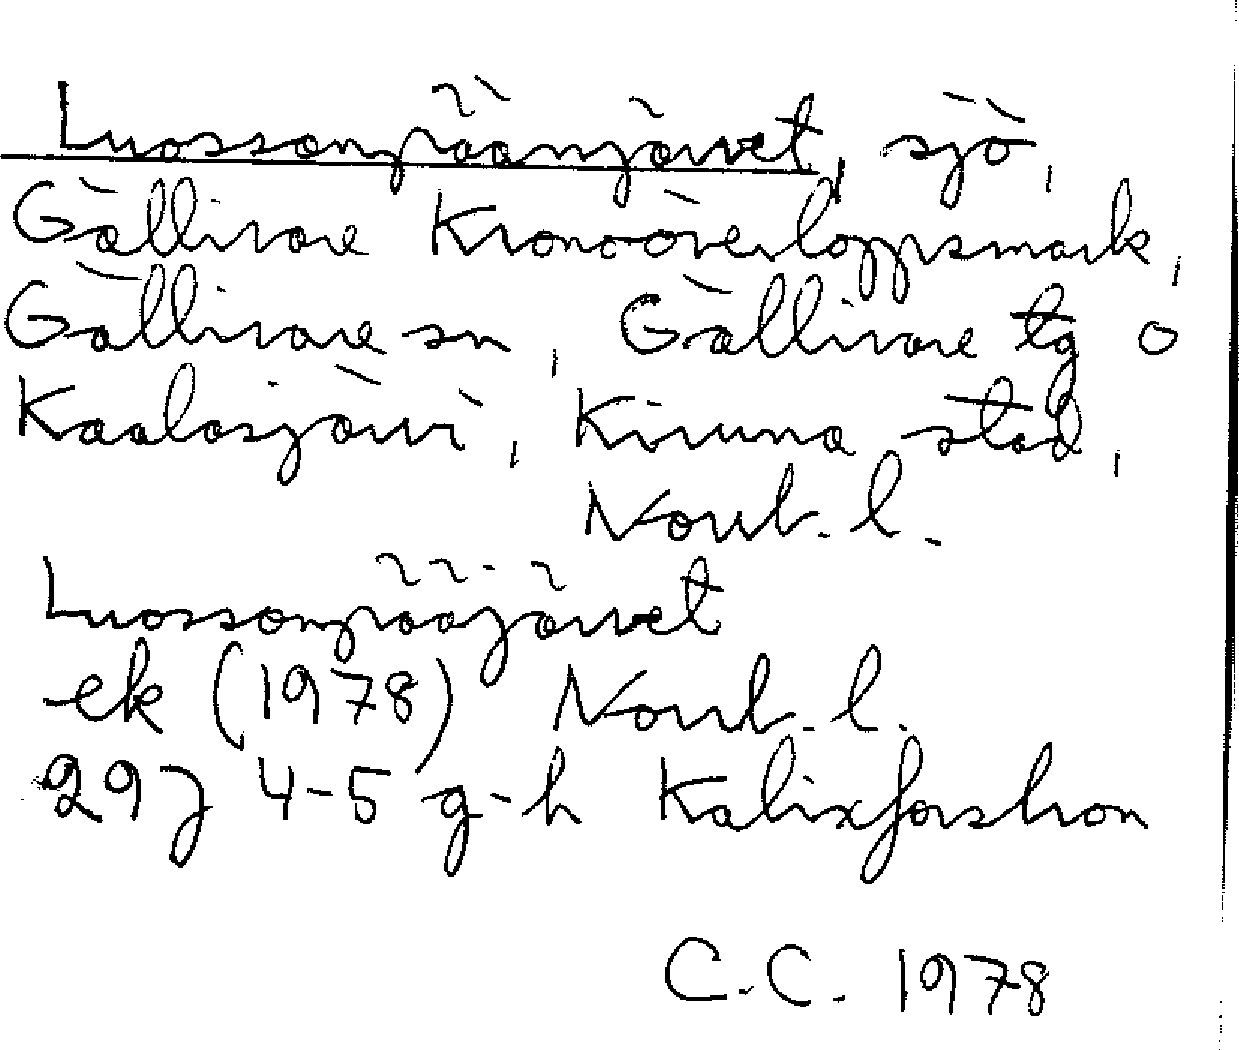 Luossonpäänjärvet, sjö,
Gällivare Kronoöverloppsmark,
Gällivare sn, Gällivare tg o
Kaalasjärvi, Kiruna stad,
Norrb. l.
Luossonpääjärvet
ek (1978) Norrb. l.
29J 4-5 g-h Kalixforsbron
C.C. 1978